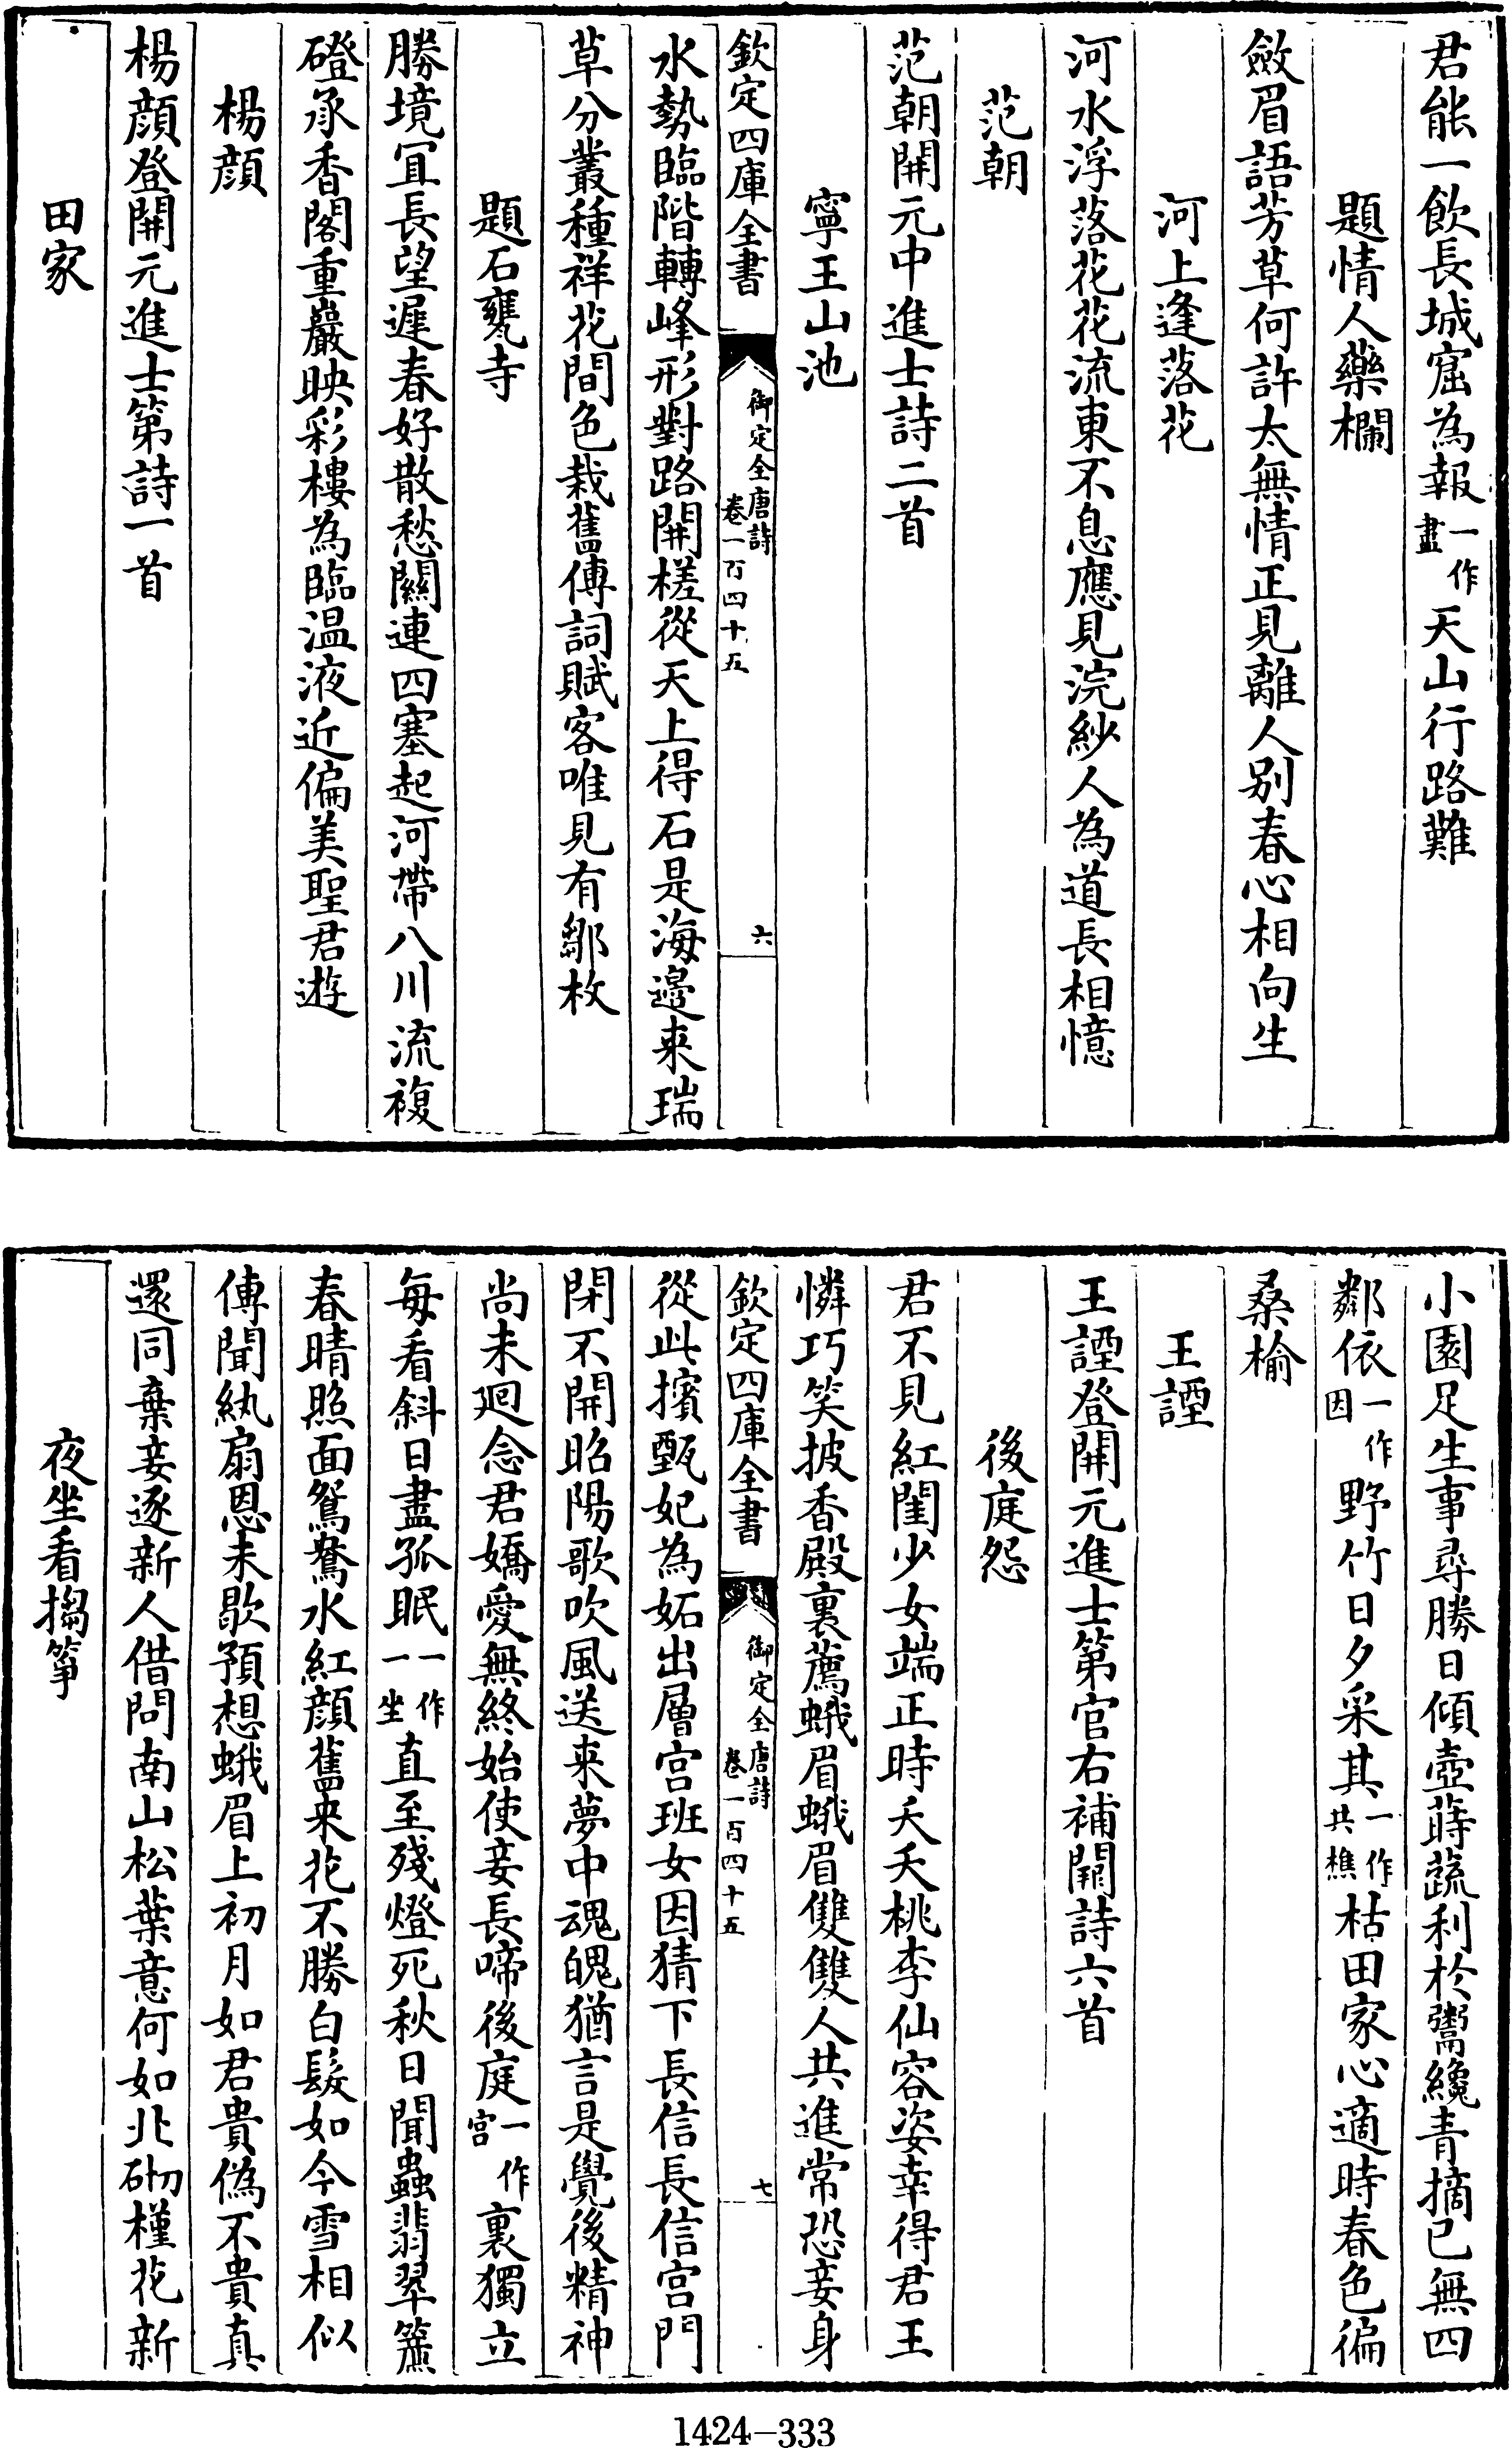 君能一飲長城窟為報一作盡天山行路難
題情人藥欄
斂眉語芳草何許太無情正見離人别春心相向生
河上逢落花
河水浮落花花流東不息應見浣紗人為道長相憶
范朝
范朝開元中進士詩二首
寧王山池
欽定四庫全書
御定全唐詩
卷一百四十五
六
水勢臨階轉峰形對路開槎從天上得石是海邉來瑞
草分叢種祥花間色栽舊傳詞賦客唯見有鄒枚
題石甕寺
勝境宜長望遲春好散愁關連四塞起河帶八川流複
磴承香閣重巖映彩樓為臨温液近偏美聖君遊
楊顔
楊顔登開元進士第詩一首
田家
小園足生事尋勝日傾壺蒔蔬利於鬻纔青摘已無四
鄰依一作因野竹日夕采其一作共樵枯田家心適時春色徧
桑榆
王諲
王諲登開元進士第官右補闕詩六首
後庭怨
君不見紅閨少女端正時夭夭桃李仙容姿幸得君王
憐巧笑披香殿裏薦蛾眉蛾眉雙雙人共進常恐妾身
欽定四庫全書
御定全唐詩
卷一百四十五
七
從此擯甄妃為妬出層宫班女因猜下長信長信宫門
閉不開昭陽歌吹風送來夢中魂魄猶言是覺後精神
尚未迴念君嬌愛無終始使妾長啼後庭一作宫裏獨立
每看斜日盡孤眠一作一坐直至殘燈死秋日聞蟲翡翠簾
春晴照面鴛鴦水紅顔舊來花不勝白髮如今雪相似
傳聞紈扇恩未歇預想蛾眉上初月如君貴偽不貴真
還同棄妾逐新人借問南山松葉意何如北砌槿花新
夜坐看搊箏
1424-333